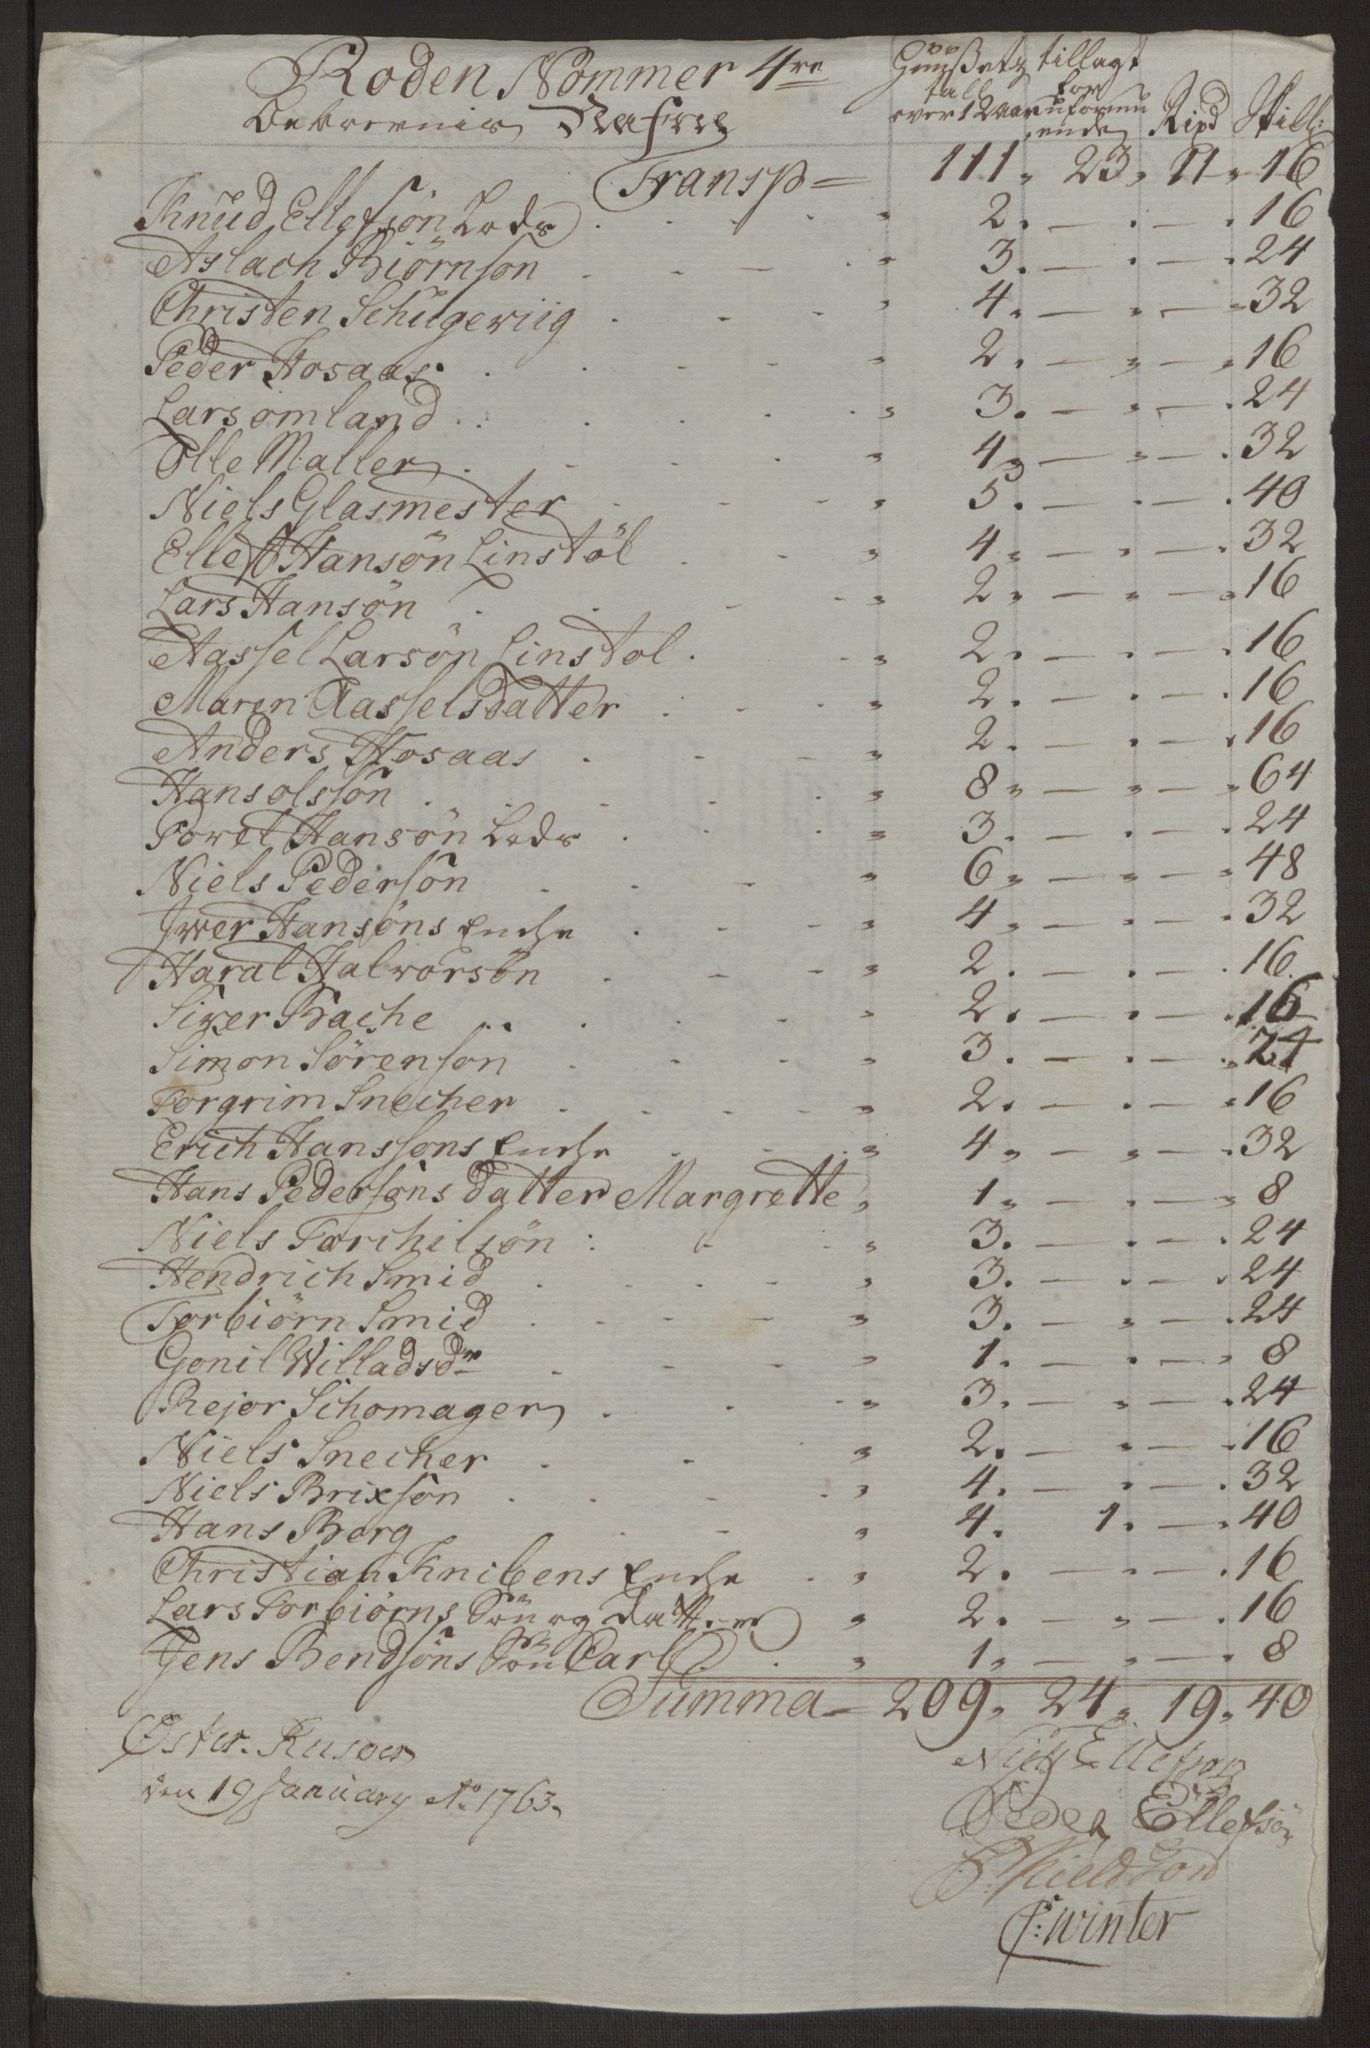 Roden Nommer 4re
Beboernis Nafne
Huuß etz tall over 12 aar
tillagt for uformuende
Rixd
Skill:
Transp = 111. 23. 11. 16
Knud Ellefsøn Lods 2. — . — . 16
Aslach Biørnson 3. — . — . 24
Christen Schugeviig 4. — . — . 32
Peder Hosaas 2. — . — . 16
Lars omland 3. — . — . 24
Olle Maller 4. — . — . 32
Niels Glasmester 5. — . — . 40
Elleff Hansøn Linstøl 4. — . — . 32
Lars Hansøn 2. — . — . 16
Aassel Larsøn Linstøl 2. — . — . 16
Maren Aasselsdatter 2. — . — . 16
Anders Hosaas 2. — . — . 16
Hans olssøn 8. — . — . 64
Torel Hansøn Lods 3. — . — . 24
Niels Pedersøn 6. — . — . 48
Iver Hansøns Enche 4. — . — . 32
Haral Halvorsøn 2. — . — . 16
Siver Bache 2. — . — . 16
Simon Sørensøn 3. — . — . 24
Torgrim Snecher 2. — . — . 16
Erich Hanssøns Enche 4. — . — . 32
Hans Pedersøns datter Margrette 1. — . — . 8
Niels Torchilsøn 3. — . — . 24
Hendrich Smid 3. — . — . 24
Torbiørn Smid 3. — . — . 24
Gonil Willadsdr 1. — . — . 8
Rejer Schomager 3. — . — . 24
Niels Snecher 2. — . — . 16
Niels Brixsøn 4. — . — . 32
Hans Berg 4. 1. — . 40
Christian Knibens Enche 2. — . — . 16
Lars Torbiørns Søn og Datter 2. — . — . 16
Jens Bendsøns Søn Carl 1. — . — . 8
Summa = 209. 24. 19. 40
Øster-Riisøer
den 19 January Ao 1763.
Niels Ellefsøn
Peder Ellefsøn
C: Winter